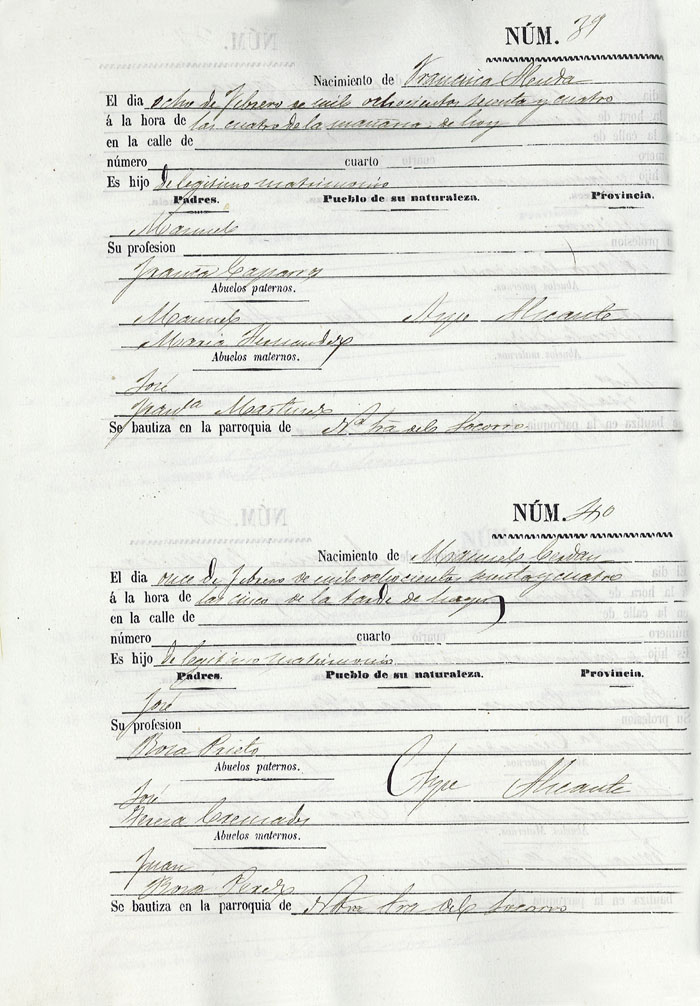 NÚM. 39
Nacimiento de Francisca Alenda
El dia ocho de Febrero de mil ochocientos sesenta y cuatro
á la hora de las cuatro de la mañana de hoy
en la calle de
número cuarto
Es hijo de legitimo matrimonio
Padres. Pueblo de su naturaleza. Provincia.
Manuel
Su profesion
Franca Caparros
Abuelos paternos.
Manuel Aspe Alicante
Maria Hernandez
Abuelos maternos.
José
Franca Martinez
Se bautiza en la parroquia de Ntra Sra del Socorro
NÚM. 40
Nacimiento de Manuel Cerdan
El dia once de Febrero de mil ochocientos sesenta y cuatro
á la hora de las cinco de la tarde de
en la calle de
número cuarto
Es hijo de legitimo matrimonio
Padres. Pueblo de su naturaleza. Provincia.
José
Su profesion
Rosa Prieto
Abuelos paternos.
José Aspe Alicante
Teresa Cremades
Abuelos maternos.
Juan
Rosa Perez
Se bautiza en la parroquia de Ntra Sra del Socorro